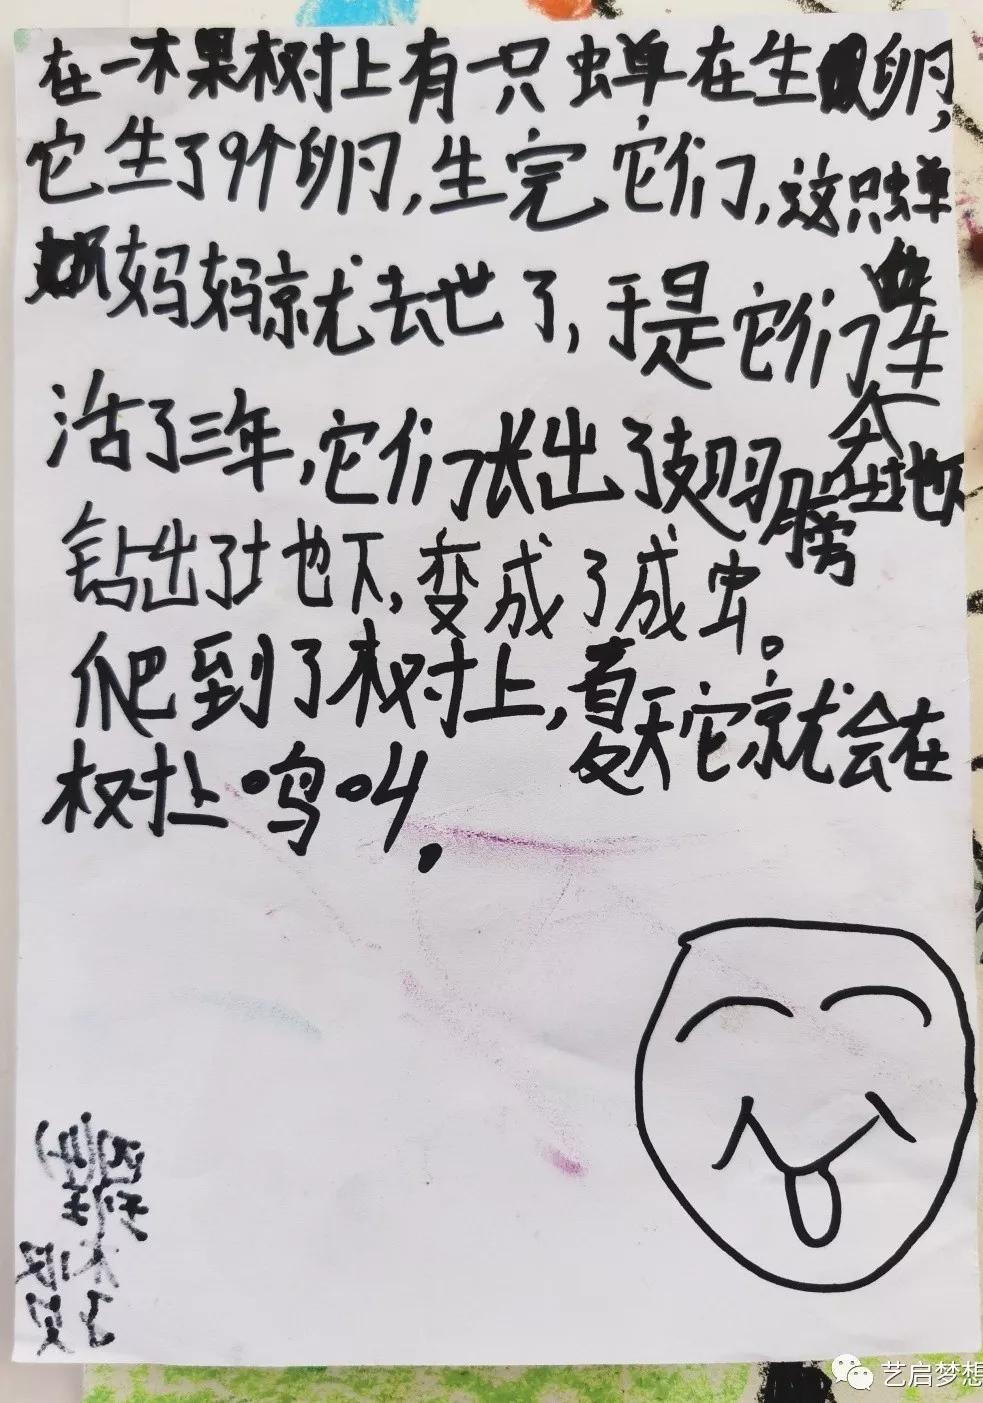 在一棵树上有一只蝉在生卵,
它生了9个卵,生完它们,这只蝉
妈妈就去世了,于是它们生
在地下
活了三年,它们长出了翅膀
钻出了地下,变成了成虫。
爬到了树上,夏天它就会在
树上鸣叫.
艺启梦想